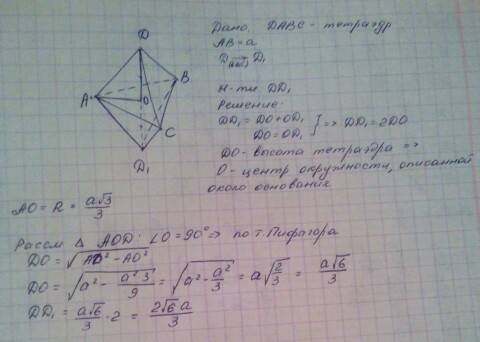 Дано: DABC - тетраэдр
AB = a
D (ABC)→ D₁
Н-ти DD₁
Решение:
DD₁ = DO + OD₁ } => DD₁ = 2DO
DO = OD₁
DO - высота тетраэдра =>
O - центр окружности, описанной
около основания
D
A
B
O
C
D₁
AO = R = a√3/3
Рассм △ AOD: ∠O = 90° => по т. Пифагора
DO = √(AD² - AO²)
DO = √(a² - a²3/9) = √(a² - a²/3) = a√(2/3) = a√6/3
DD₁ = a√6/3 · 2 = 2√6a/3